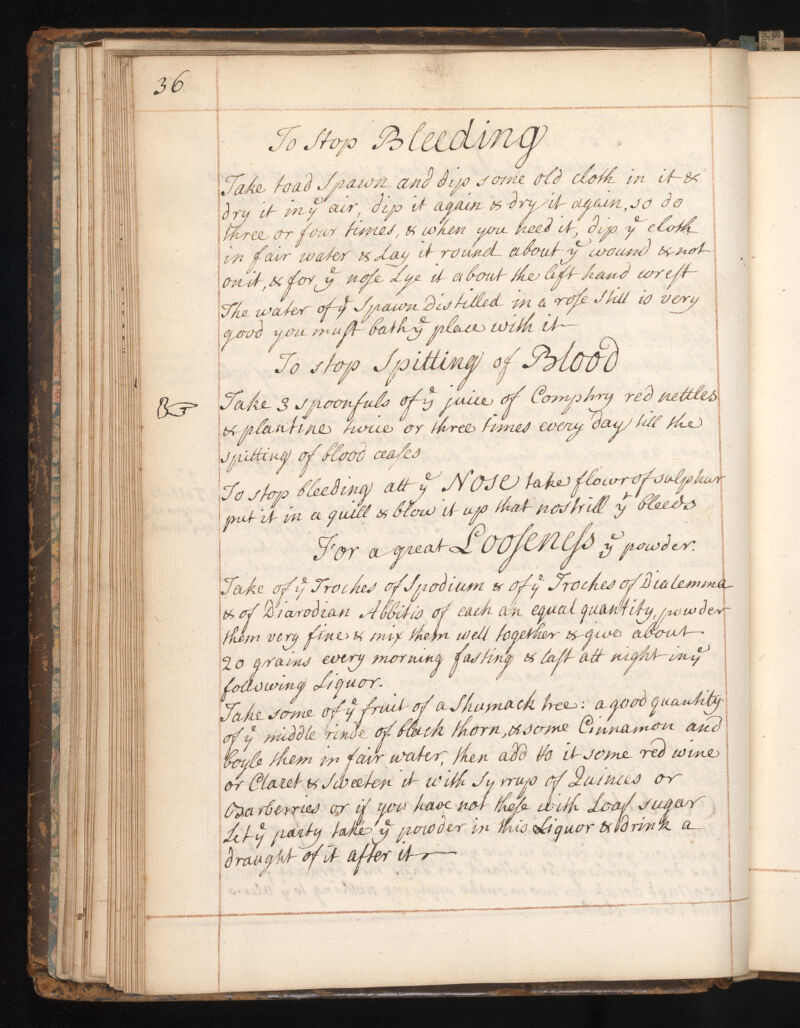 36
To Stop Bleeding
Take toad Spawn and dip some old cloth in it &
dry it in yͤ air, dip it again & dry it again, so do
three or four times, & when you need it, dip yͤ cloth
in fair water & Lay it round about yͤ wound & not
on it, & for yͤ nose Lye it about the left hand wrest
The water of yͤ Spawn Distilled in a rose Still is very
good you must bath yͤ place with it
To stop Spitting of Blood
Take 3 spoonfuls of yͤ juice of Comphry red nettles
& plantine twice or three times every day till the
spitting of blood ceases
To stop bleeding att yͤ Nose take flowr of sulphur
put it in a quill & blow it up that nostrill yͭ bleeds
For a great Looseness yͤ powder.
Take of yͤ Troches of Spodium & of yͤ Troches of Dialemma
& of Diarodian Abbitis of each an equal quantity, powder
them very fine & mix them well together & give about
20 grains every morning fasting & last att night in yͤ
following Liquor.
Take some of yͤ fruit of a Shumack tree: a good quantity
of yͤ middle rinde of black thorn, & some Cinnamon and
boyle them in fair water, then add to it some red wine
or Claret & Sweeten it with Syrrup of Quinces or
Barberries or if you have not these with Loaf sugar
Let yͤ party take yͤ powder in this Liquor & drink a
draught of it after it